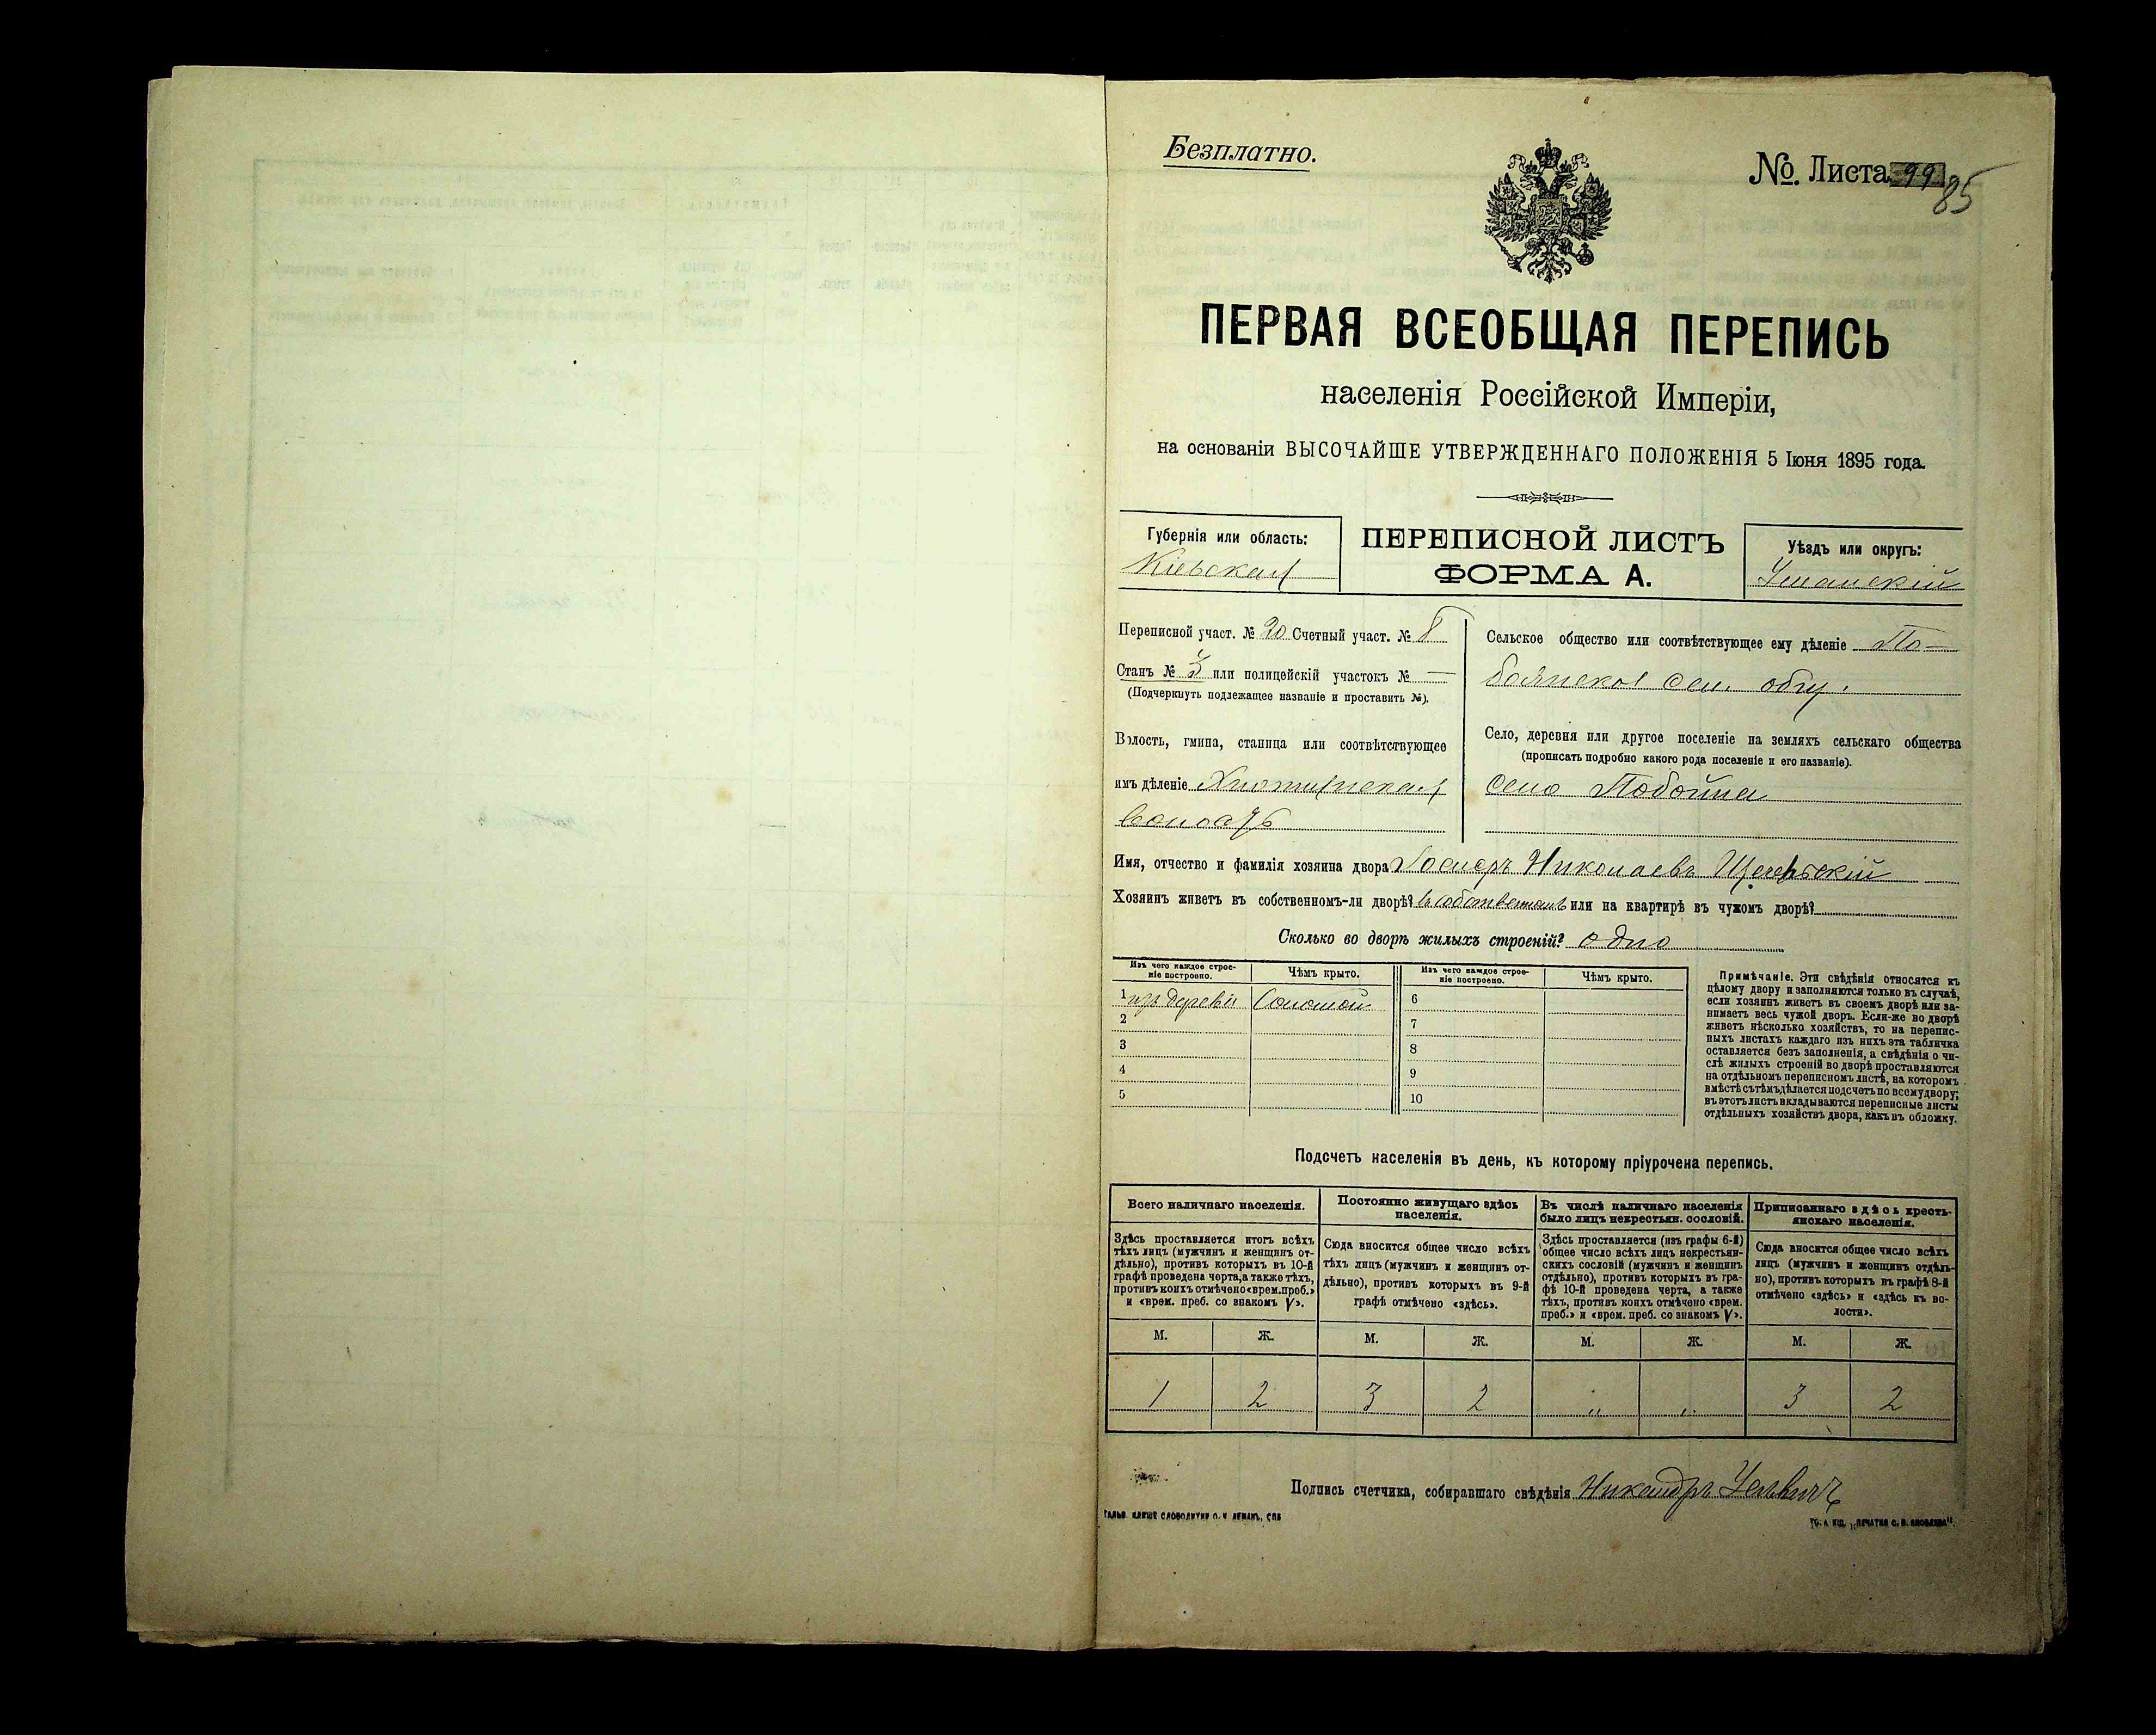 Безплатно.
№. Листа 99 85
ПЕРВАЯ ВСЕОБЩАЯ ПЕРЕПИСЬ
населенія Россійской Имперіи,
на основаніи ВЫСОЧАЙШЕ УТВЕРЖДЕННАГО ПОЛОЖЕНІЯ 5 Іюня 1895 года.
Губернія или область:
Кіевская
ПЕРЕПИСНОЙ ЛИСТЪ
ФОРМА А.
Уѣздъ или округъ:
Уманскій
Переписной участ. № 20 Счетный участ. № 8
Станъ № 3 или полицейскій участокъ № —
(Подчеркнуть подлежащее названіе и проставить №).
Волость, гмина, станица или соотвѣтствующее
имъ дѣленіе
волость
Сельское общество или соотвѣтствующее ему дѣленіе По-
боянское сел. общ.
Село, деревня или другое поселеніе на земляхъ сельскаго общества
(прописать подробно какого рода поселеніе и его названіе).
село Побойна
Имя, отчество и фамилія хозяина двора Николаевъ
Хозяинъ живетъ въ собственномъ-ли дворѣ? въ собственномъ или на квартирѣ въ чужомъ дворѣ?
Сколько во дворѣ жилыхъ строеній? одно
Изъ чего каждое строе-
ніе построено.
Чѣмъ крыто.
Изъ чего каждое строе-
ніе построено.
Чѣмъ крыто.
1 изъ дерева Соломой
2
3
4
5
6
7
8
9
10
Примѣчаніе. Эти свѣдѣнія относятся къ
цѣлому двору и заполняются только въ случаѣ,
если хозяинъ живетъ въ своемъ дворѣ или за-
нимаетъ весь чужой дворъ. Если-же во дворѣ
живетъ нѣсколько хозяйствъ, то на перепис-
ныхъ листахъ каждаго изъ нихъ эта табличка
оставляется безъ заполненія, а свѣдѣнія о чи-
слѣ жилыхъ строеній во дворѣ проставляются
на отдѣльномъ переписномъ листѣ, на которомъ
вмѣстѣ съ тѣмъ дѣлается подсчетъ по всему двору;
въ этотъ листъ вкладываются переписные листы
отдѣльныхъ хозяйствъ двора, какъ въ обложку.
Подсчетъ населенія въ день, къ которому пріурочена перепись.
Всего наличнаго населенія.
Здѣсь проставляется итогъ всѣхъ
тѣхъ лицъ (мужчинъ и женщинъ от-
дѣльно), противъ которыхъ въ 10-й
графѣ проведена черта, а также тѣхъ,
противъ коихъ отмѣчено «врем. преб.»
и «врем. преб. со знакомъ V».
М. Ж.
1 2
Постоянно живущаго здѣсь
населенія.
Сюда вносится общее число всѣхъ
тѣхъ лицъ (мужчинъ и женщинъ от-
дѣльно), противъ которыхъ въ 9-й
графѣ отмѣчено «здѣсь».
М. Ж.
3 2
Въ числѣ наличнаго населенія
было лицъ некрестьян. сословій.
Здѣсь проставляется (изъ графы 6-й)
общее число всѣхъ лицъ некрестьян-
скихъ сословій (мужчинъ и женщинъ
отдѣльно), противъ которыхъ въ гра-
фѣ 10-й проведена черта, а также
тѣхъ, противъ коихъ отмѣчено «врем.
преб.» и «врем. преб. со знакомъ V».
М. Ж.
" "
Приписаннаго здѣсь кресть-
янскаго населенія.
Сюда вносится общее число всѣхъ
лицъ (мужчинъ и женщинъ отдѣль-
но), противъ которыхъ въ графѣ 8-й
отмѣчено «здѣсь» и «здѣсь къ во-
лости».
М. Ж.
3 2
Подпись счетчика, собиравшаго свѣдѣнія Никандръ
ГАЛЬВ. КЛИШЕ СЛОВОЛИТНИ О. И. ЛЕМАНЪ, СПБ